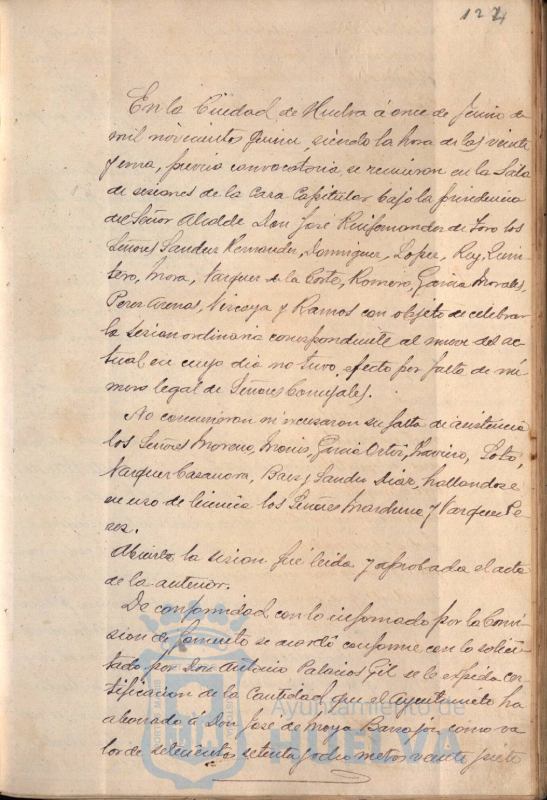 124
En la Ciudad de Huelva á once de Junio de
mil novecientos quince, siendo la hora de las veinte
y una, previa convocatoria, se reunieron en la Sala
de sesiones de la Casa Capitular bajo la presidencia
del Señor Alcalde Don José Ruifernandez de Toro los
Señores Sanchez Hernandez, Dominguez, Lopez, Rey, Quin-
tero, Mora, Vazquez de la Corte, Romero, Garcia Morales,
Perez Arenas, Vizcaya y Ramos con objeto de celebrar
la sesion ordinaria correspondiente al nueve del ac-
tual en cuyo dia no tuvo efecto por falta de nú-
mero legal de Señores Concejales.
No concurrieron ni excusaron su falta de asistencia
los Señores Moreno, Garcia Ortiz, Soto,
Vazquez Casanova, Baez y Sanchez Diaz, hallandose
en uso de licencia los Señores y Vazquez Pe-
rez.
Abierta la sesion fué leida y aprobada el acta
de la anterior.
De conformidad con lo informado por la Comi-
sion de Fomento se acordó conforme con lo solici-
tado por Don Antonio Palacios Gil se le expida cer-
tificacion de la Cantidad que el Ayuntamiento ha
abonado á Don José de Moya como va-
lor de setecientos setenta y ocho metros veinte y siete
Ayuntamiento de
HUELVA